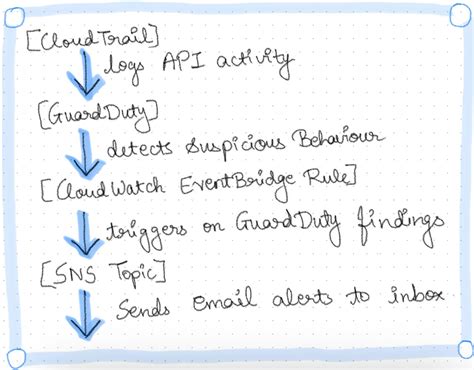 [CloudTrail]
logs API activity
[GuardDuty]
detects Suspicious Behaviour
[CloudWatch EventBridge Rule]
triggers on GuardDuty findings
[SNS Topic]
Sends email alerts to inbox